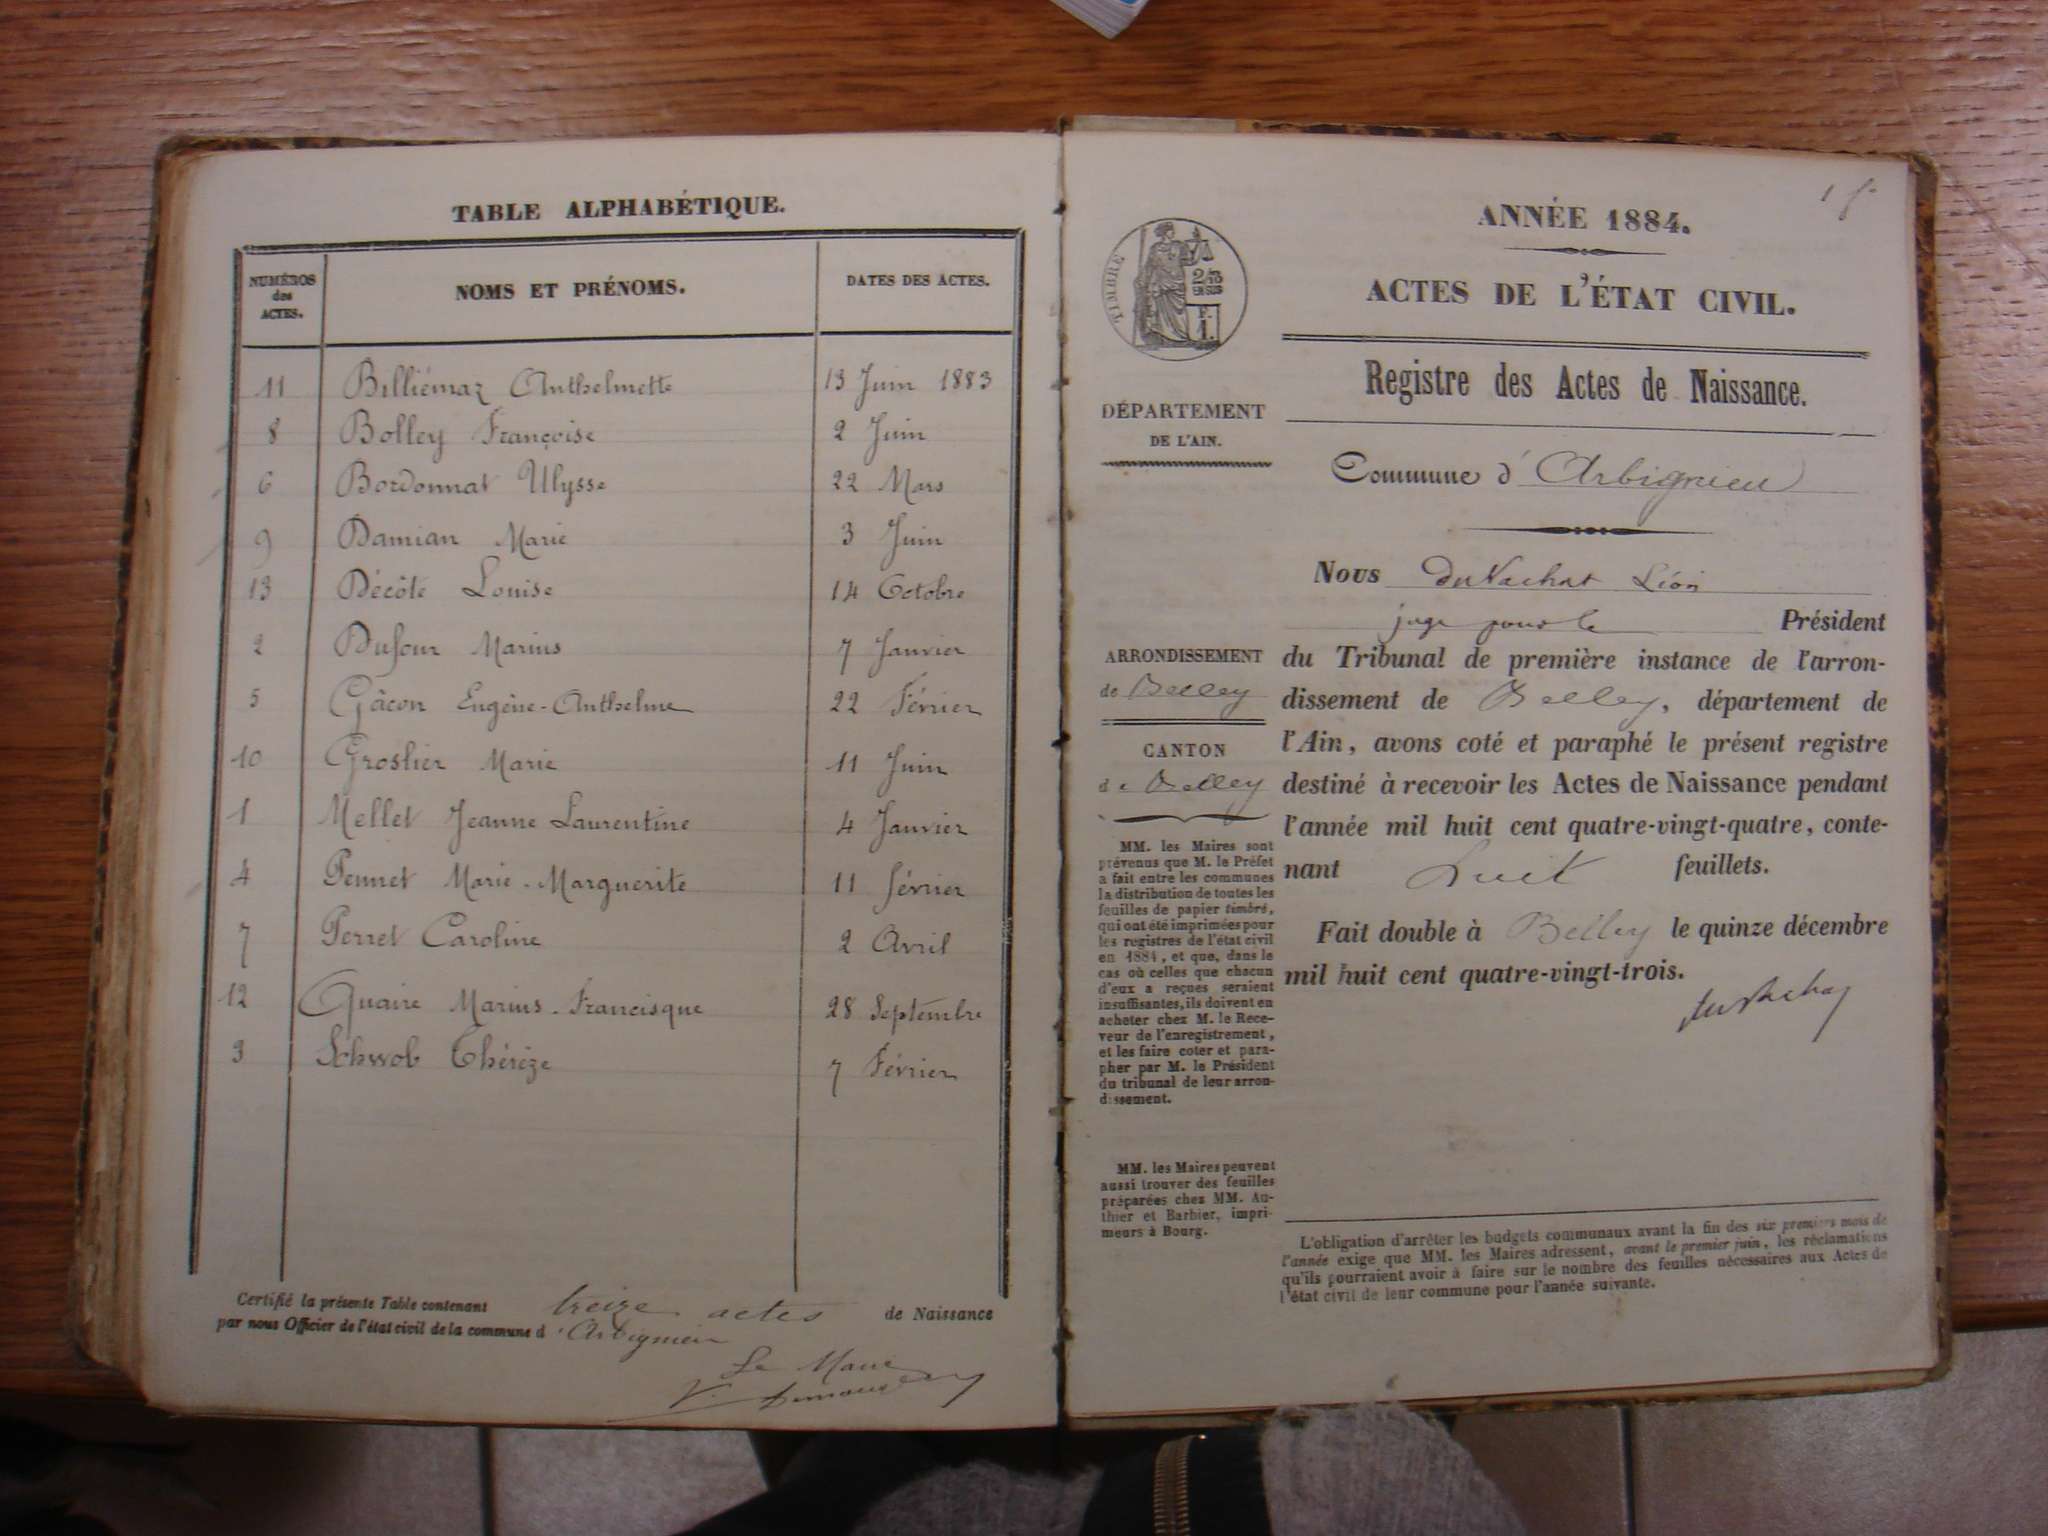 TABLE ALPHABÉTIQUE.
NUMÉROS des ACTES. NOMS ET PRÉNOMS. DATES DES ACTES.
11 Billiémaz Anthelmette 13 Juin 1883
8 Bolley Françoise 2 Juin
6 Bordonnat Ulysse 22 Mars
9 Damian Marie 3 Juin
13 Décôte Louise 14 Octobre
2 Dufour Marius 7 Janvier
5 Gâcon Eugène-Anthelme 22 Février
10 Groslier Marie 11 Juin
1 Mellet Jeanne Laurentine 4 Janvier
4 Pennet Marie-Marguerite 11 février
7 Perret Caroline 2 Avril
12 Quaire Marius-Francisque 28 Septembre
3 Schwob Thérèze 7 Février
Certifié la présente Table contenant treize actes de Naissance
par nous Officier de l'état civil de la commune d'Arbignieu
Le Maire
ANNÉE 1884.
ACTES DE L'ÉTAT CIVIL.
Registre des Actes de Naissance.
Commune d'Arbignieu
TIMBRE
2/10
EN SUS
F.
1.
DÉPARTEMENT
DE L'AIN.
ARRONDISSEMENT
de Belley
CANTON
de Belley
MM. les Maires sont
prévenus que M. le Préfet
a fait entre les communes
la distribution de toutes les
feuilles de papier timbré,
qui ont été imprimées pour
les registres de l'état civil
en 1884, et que, dans le
cas où celles que chacun
d'eux a reçues seraient
insuffisantes, ils doivent en
acheter chez M. le Rece-
veur de l'enregistrement,
et les faire coter et para-
pher par M. le Président
du tribunal de leur arron-
dissement.
MM. les Maires peuvent
aussi trouver des feuilles
préparées chez MM. Au-
thier et Barbier, impri-
meurs à Bourg.
Nous duVachat Léon
juge pour le Président
du Tribunal de première instance de l'arron-
dissement de Belley, département de
l'Ain, avons coté et paraphé le présent registre
destiné à recevoir les Actes de Naissance pendant
l'année mil huit cent quatre-vingt-quatre, conte-
nant huit feuillets.
Fait double à Belley le quinze décembre
mil huit cent quatre-vingt-trois.
L'obligation d'arrêter les budgets communaux avant la fin des six premiers mois de
l'année exige que MM. les Maires adressent, avant le premier juin, les réclamations
qu'ils pourraient avoir à faire sur le nombre des feuilles nécessaires aux Actes de
l'état civil de leur commune pour l'année suivante.